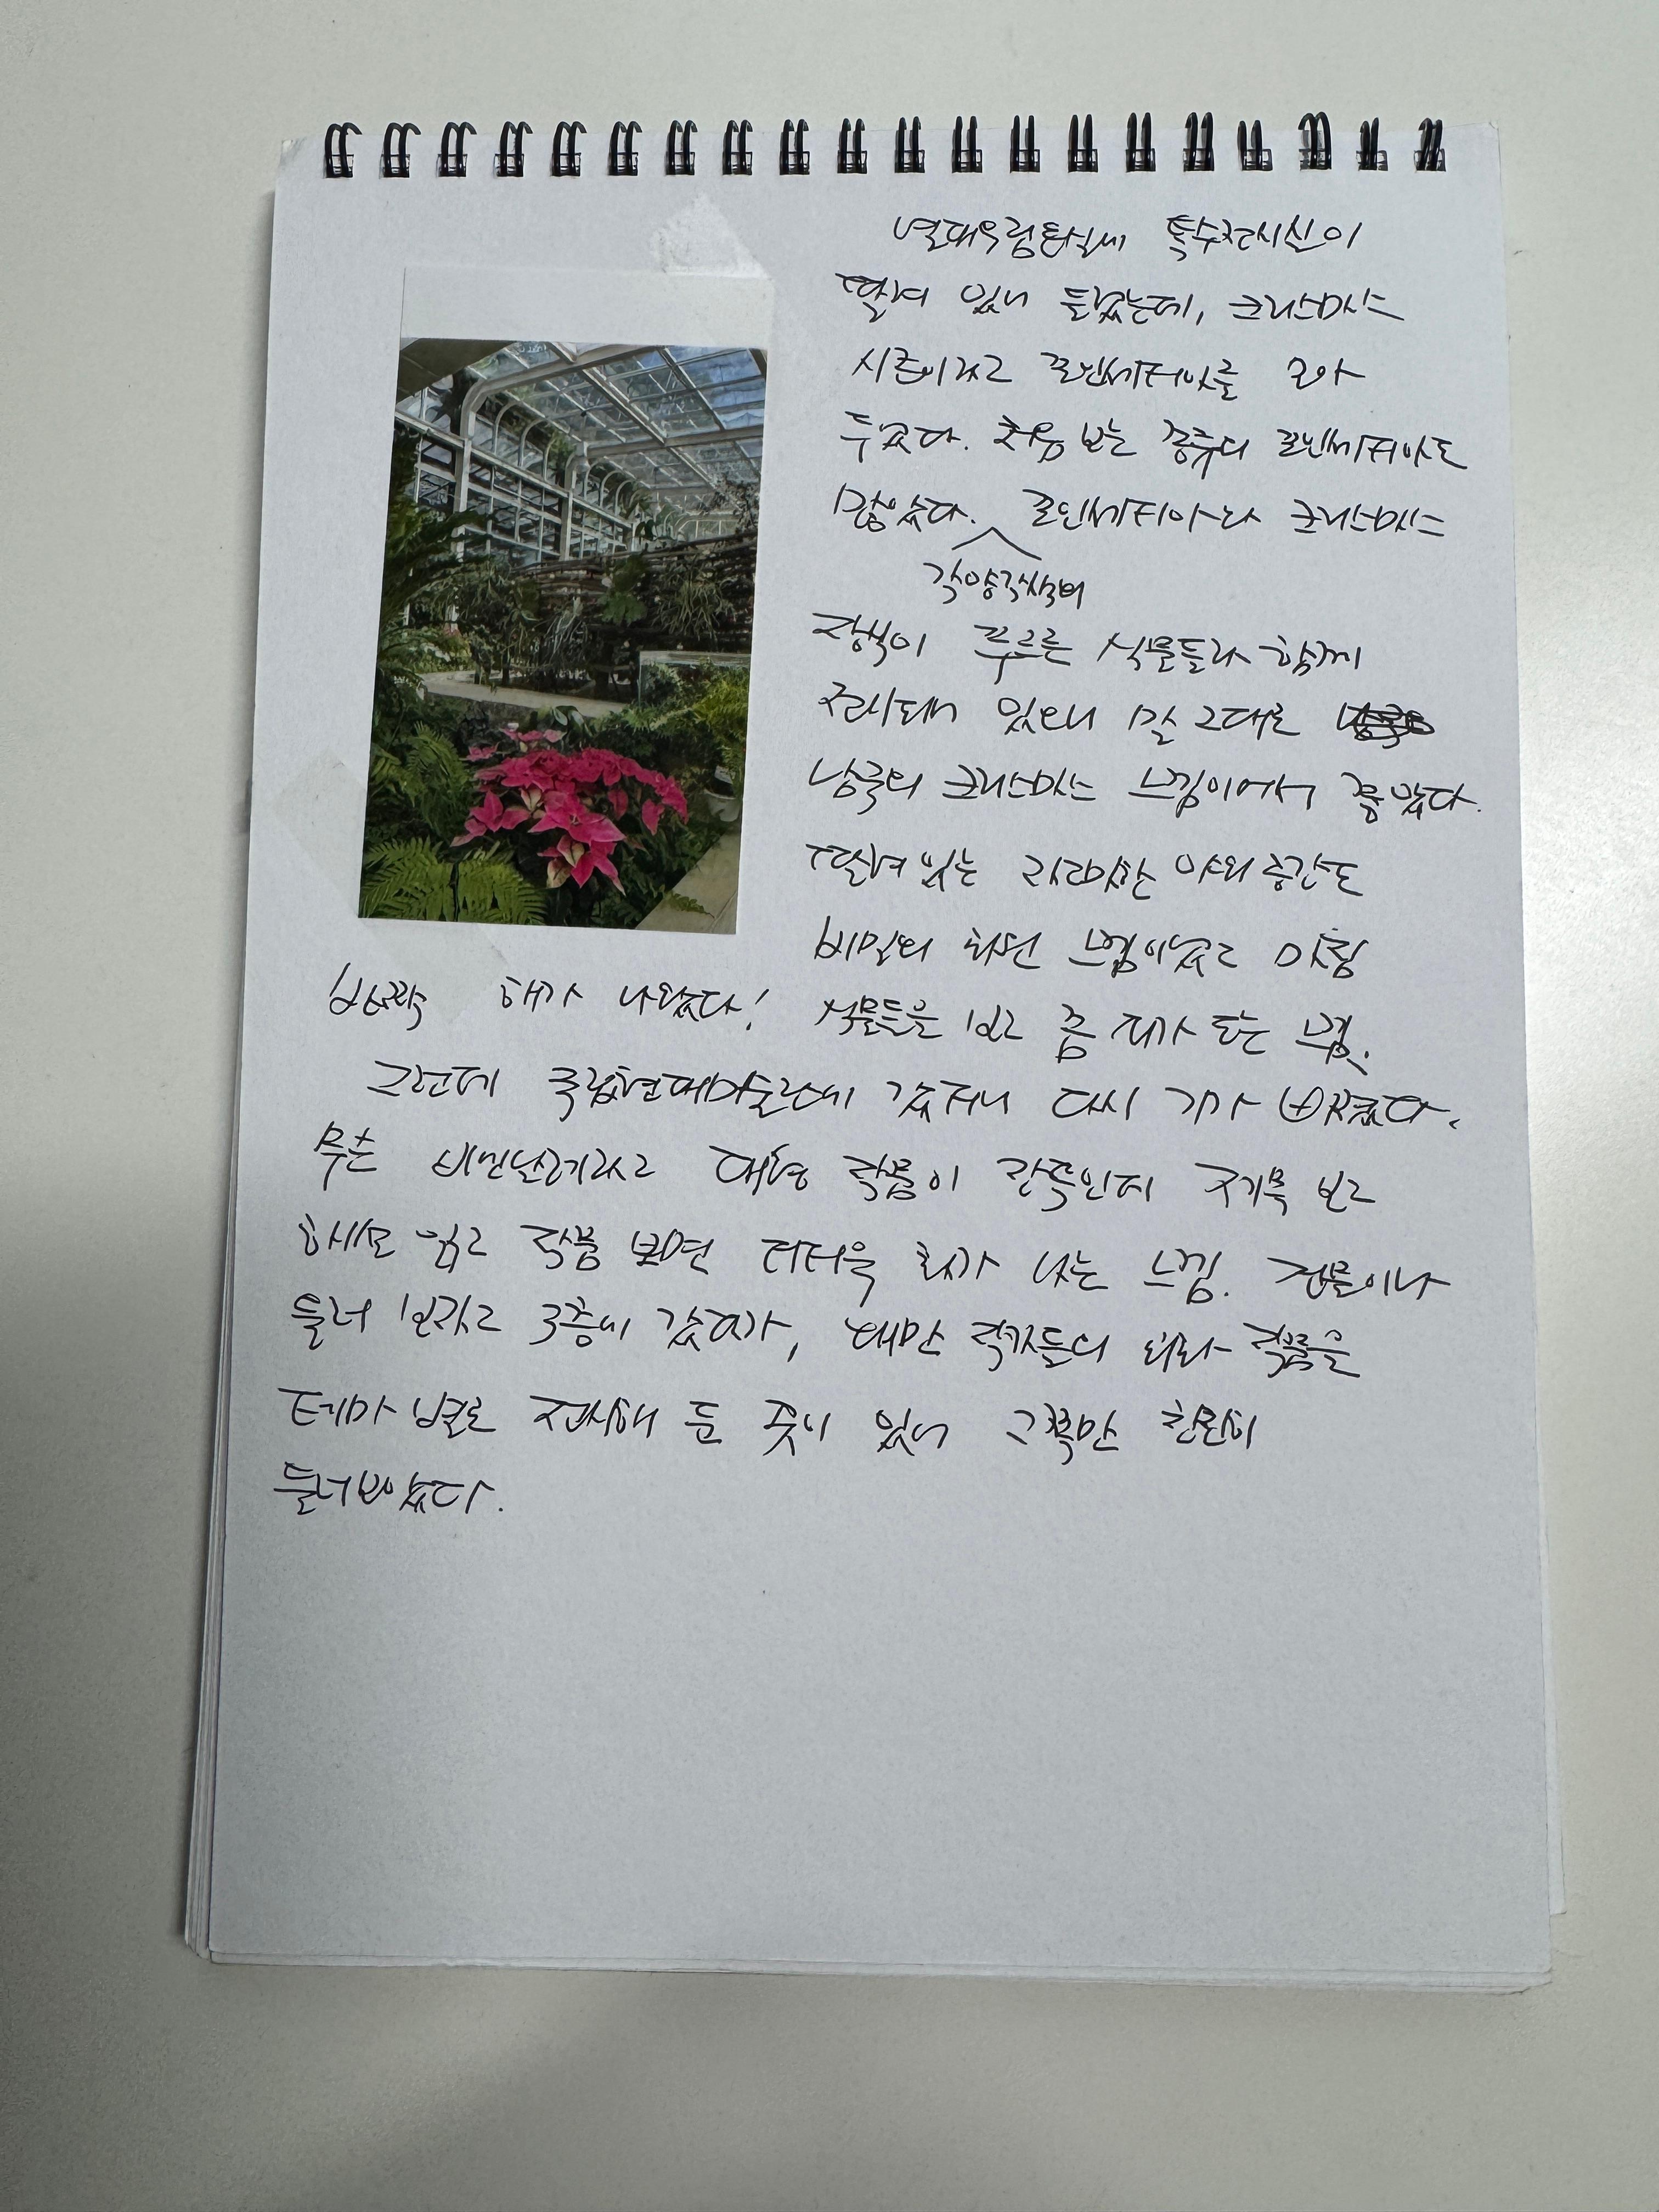 열대우림온실에 특수전시실이
딸려 있어 들렀는데, 크리스마스
시즌이라고 포인세티아를 모아
두었다. 처음 보는 종류의 포인세티아도
많았다. 포인세티아와 크리스마스
각양각색의
장식이 푸르른 식물들과 함께
전시돼 있으니 말 그대로
남국의 크리스마스 느낌이어서 좋았다.
딸려 있는 자그마한 야외 공간도
비밀의 화원 느낌이었고 마침
반짝 해가 나왔다! 식물들을 보고 좀 기가 사는 느낌.
그런데 국립현대미술관에 갔더니 다시 기가 빨렸다.
무슨 비엔날레라고 대형 작품이 잔뜩인데 주제문 보고
해설도 읽고 작품 보면 더더욱 화가 나는 느낌. 건물이나
둘러 보자고 3층에 갔다가, 대만 작가들의 회화 작품을
테마 별로 전시해 둔 곳이 있어 그쪽만 찬찬히
둘러보았다.